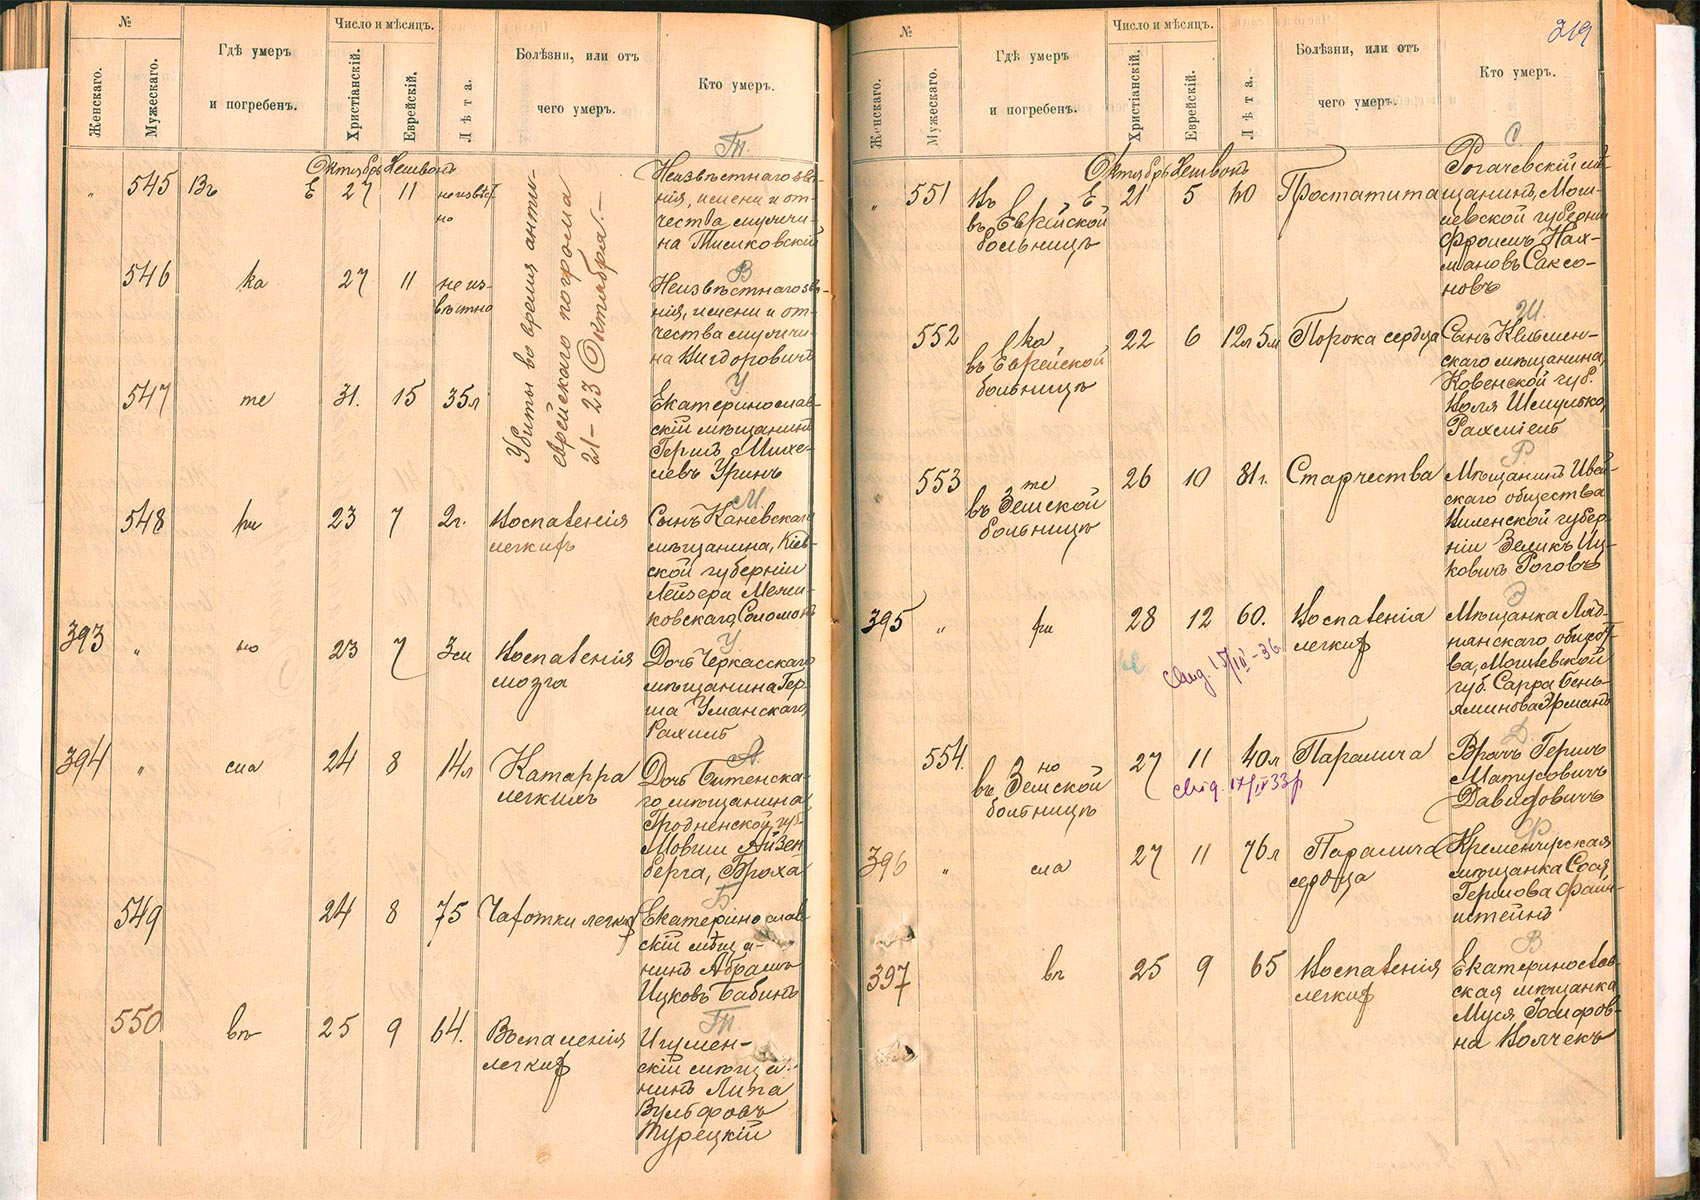 №
Женскаго.
Мужескаго.
Гдѣ умеръ
и погребенъ.
Число и мѣсяцъ.
Христіанскій.
Еврейскій.
Лѣта.
Болѣзни, или отъ
чего умеръ.
Кто умеръ.
Октябрь Хешвонъ
545 Въ Е 27 11 неизвѣст-
но
Убиты во время анти-
еврейскаго погрома
21-23 Октября.-
Т.
Неизвѣстнаго зва-
нія, имени и от-
чества мужчи-
на Тисиковскій
546 ка 27 11 не из-
вѣстно
В
Неизвѣстнаго зва-
нія, имени и от-
чества мужчи-
на Вигдоровичъ
547 те 31. 15 35л
У
Екатеринослав-
скій мѣщанинъ
Гершъ Михе-
левъ Уринъ
548 ри 23 7 2г. Воспаленія
легкихъ
М
Сынъ Каневскаго
мѣщанина, Кіев-
ской губерніи
Лейзера Межи-
ковскаго, Соломонъ
393 „ но 23 7 3м Воспаленія
мозга
У
Дочь Черкасскаго
мѣщанина Гер-
ша Уманскаго,
Рахиль
394 „ сла 24 8 14л Катарра
легкихъ
А
Дочь Битенска-
го мѣщанина,
Гродненской губ.
Мовши Айзен-
берга, Броха
549 24 8 75 Чахотки легких
Б
Екатеринослав-
скій мѣща-
нинъ Абрамъ
Ицковъ Бабинъ
550 въ 25 9 64. Воспаленія
легких
Т
Игумен-
скій мѣща-
нинъ Липа
Вульфовъ
Турецкій
219
№
Женскаго.
Мужескаго.
Гдѣ умеръ
и погребенъ.
Число и мѣсяцъ.
Христіанскій.
Еврейскій.
Лѣта.
Болѣзни, или отъ
чего умеръ.
Кто умеръ.
Октябрь Хешвонъ
„ 551 Въ Е 21 5 40 Простатита
въ Еврейской
больницѣ
С
Рогачевскій мѣ-
щанинъ, Моги-
левской губерніи
Фроимъ Нах-
мановъ Саксо-
новъ
552 ка 22 6 12л 5м Порока сердца
въ Еврейской
больницѣ
Ш.
Сынъ Кельмен-
скаго мѣщанина,
Ковенской губ.
Рахміель
„ 553 те 26 10 81г. Старчества
въ Земской
больницѣ
Р
Мѣщанинъ Ивей-
скаго общества
Виленской губер-
ніи Зеликъ Иц-
ковичъ Роговъ
395 „ ри 28 12 60. Воспаленія
легких
Э
Мѣщанка Ляд-
нянскаго общест-
ва, Могилевской
губ. Сарра Бень-
яминова Эрманъ
554. но 27 11 40л Паралича
въ Земской
больницѣ
Д.
Врачъ Гершъ
Матусовичъ
Давидовичъ
396 „ сла 27 11 76л Паралича
сердца
Ф
Кременчугская
мѣщанка Сося
Гершова Файн-
штейнъ
397 въ 25 9 65 Воспаленія
легких
В
Екатеринослав-
ская мѣщанка
Муся Іосифов-
на Волчекъ